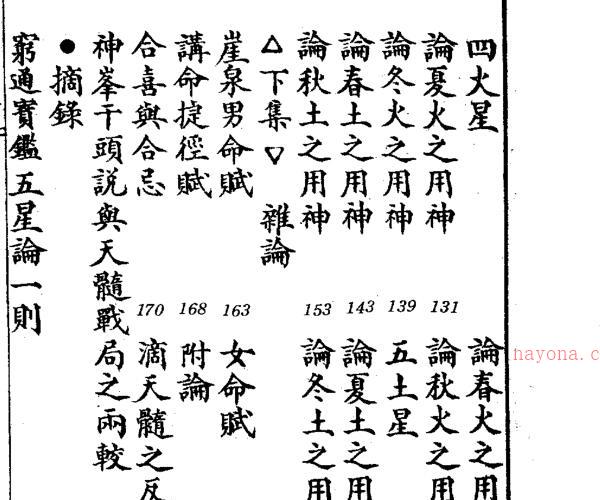 四火星　論春火之用
論夏火之用神　131　論秋火之用
論冬火之用神　139　五土星
論春土之用神　143　論夏土之用
論秋土之用神　153　論冬土之用
△下集▽　雜論
崖泉男命賦　163　女命賦
講命捷徑賦　168　附論
合喜與合忌　170　滴天髓之反
神峯干頭說與天髓戰局之兩較
●摘錄
窮通寶鑑五星論一則
hayona.c